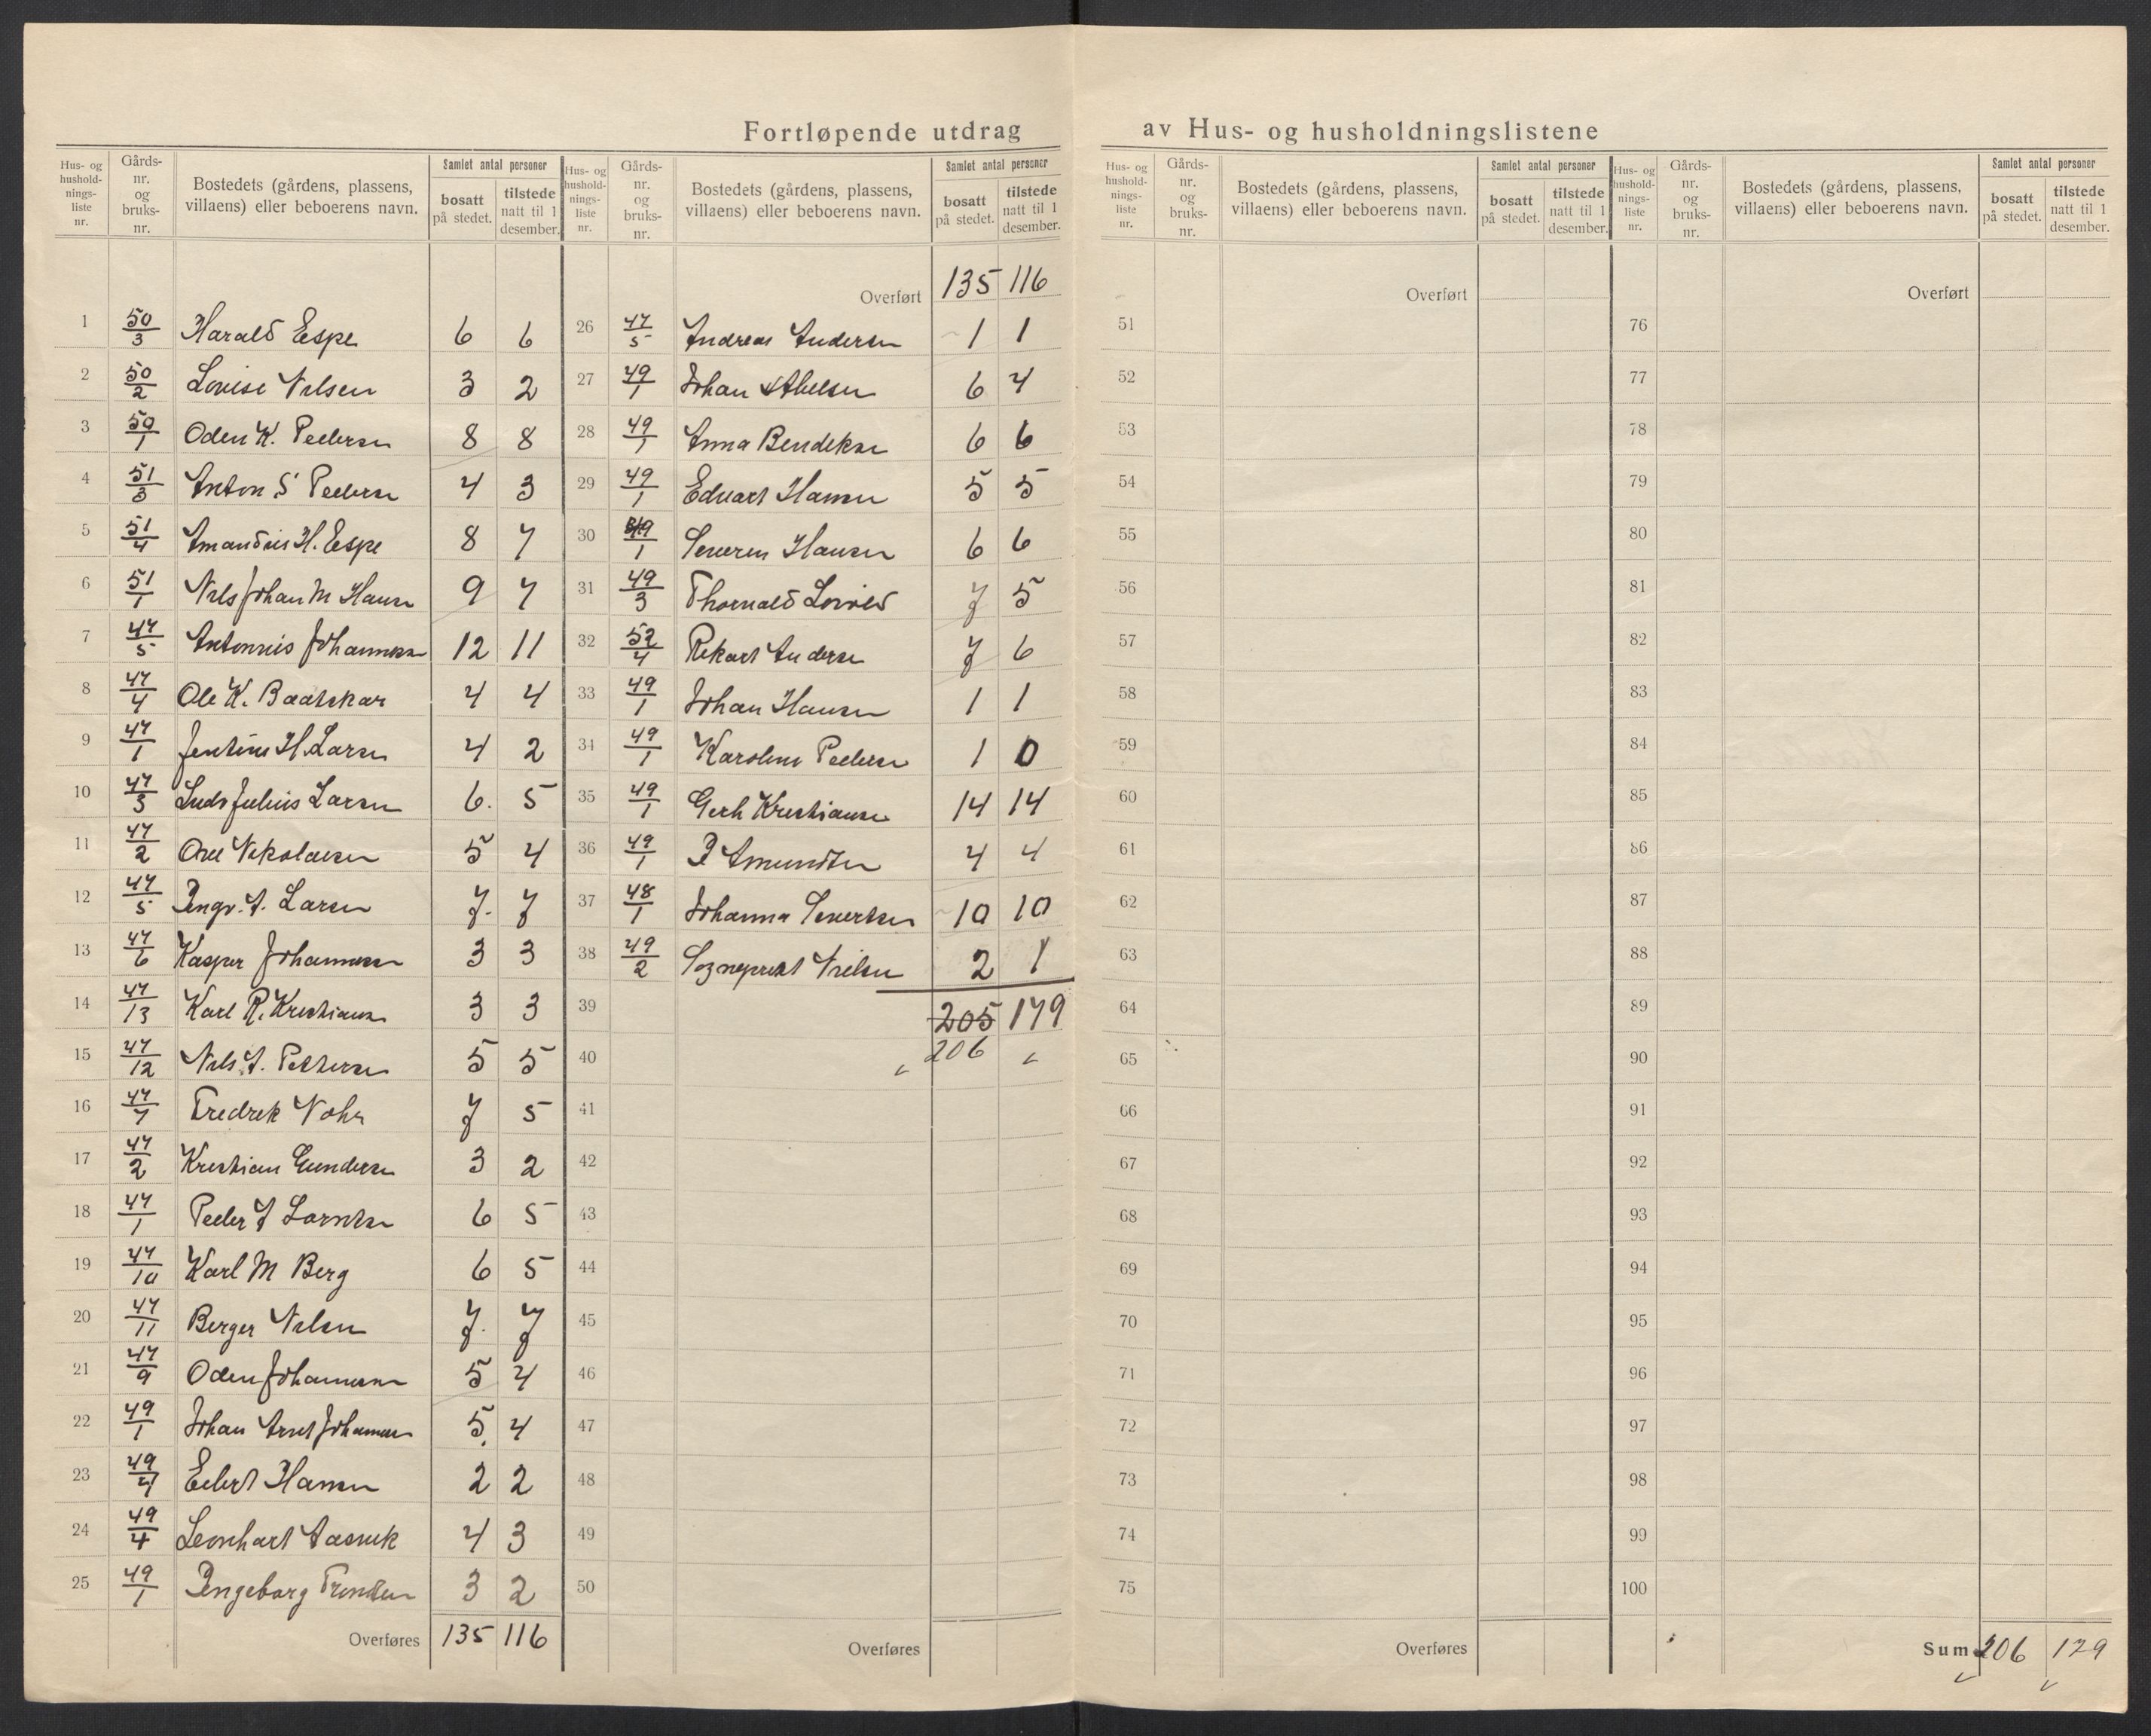 Fortløpende utdrag av Hus- og husholdningslistene
Hus- og husholdningsliste nr. Gårds-nr. og bruks-nr. Bostedets (gårdens, plassens, villaens) eller beboerens navn. Samlet antal personer bosatt på stedet. tilstede natt til 1 desember.
1 50/3 Harald Espe 6 6
2 50/2 Lovise Nilsen 3 2
3 50/1 Oden K. Pedersen 8 8
4 51/3 Anton S Pedersen 4 3
5 51/4 H. Espe 8 7
6 51/1 Nils Johan M Hansen 9 7
7 47/5 Antonius Johannesen 12 11
8 47/4 Ole K. Baatskar 4 4
9 47/1 H. Larsen 4 2
10 47/3 Julius Larsen 6. 5
11 47/2 Nikolaisen 5 4
12 47/5 Ingv. A. Larsen 7. 7
13 47/6 Kasper Johannesen 3 3
14 47/13 Karl R. Kristiansen 3 3
15 47/12 Nils A. Pettersen 5 5
16 47/7 Fredrik Nohr 7 5
17 47/2 Kristian Gundersen 3 2
18 47/1 Peder A Lorntsen 6 5
19 47/10 Karl M Berg 6 5
20 47/11 Berger Nilsen 7. 7
21 47/9 Oden Johannesen 5 4
22 49/1 Johan Arnt Johansen 5. 4
23 49/7 Edert Hansen 2 2
24 49/4 Leonhart Aasvik 4 3
25 49/1 Ingeborg 3 2
Overføres 135 116
Hus- og husholdningsliste nr. Gårds-nr. og bruks-nr. Bostedets (gårdens, plassens, villaens) eller beboerens navn. Samlet antal personer bosatt på stedet. tilstede natt til 1 desember.
Overført 135 116
26 47/5 Andreas Andersen 1 1
27 49/1 Johan Abelsen 6 4
28 49/1 Anna Bendiksen 6 6
29 49/1 Edvart Hansen 5 5
30 49/1 Severin Hansen 6 6
31 49/3 Thorvald Lorvild 7 5
32 52/4 Rikart Andersen 7 6
33 49/1 Johan Hansen 1 1
34 49/1 Karoline Pedersen 1 0
35 49/1 Gerh Kristiansen 14 14
36 49/1 P Amundsen 4 4
37 48/1 Johanna Sivertsen 10 10
38 49/2 Sogneprest Nielsen 2 1
39 205 179
40 206
41
42
43
44
45
46
47
48
49
50
Overføres
Hus- og husholdningsliste nr. Gårds-nr. og bruks-nr. Bostedets (gårdens, plassens, villaens) eller beboerens navn. Samlet antal personer bosatt på stedet. tilstede natt til 1 desember.
Overført
51
52
53
54
55
56
57
58
59
60
61
62
63
64
65
66
67
68
69
70
71
72
73
74
75
Overføres
Hus- og husholdningsliste nr. Gårds-nr. og bruks-nr. Bostedets (gårdens, plassens, villaens) eller beboerens navn. Samlet antal personer bosatt på stedet. tilstede natt til 1 desember.
Overført
76
77
78
79
80
81
82
83
84
85
86
87
88
89
90
91
92
93
94
95
96
97
98
99
100
Sum 206 179